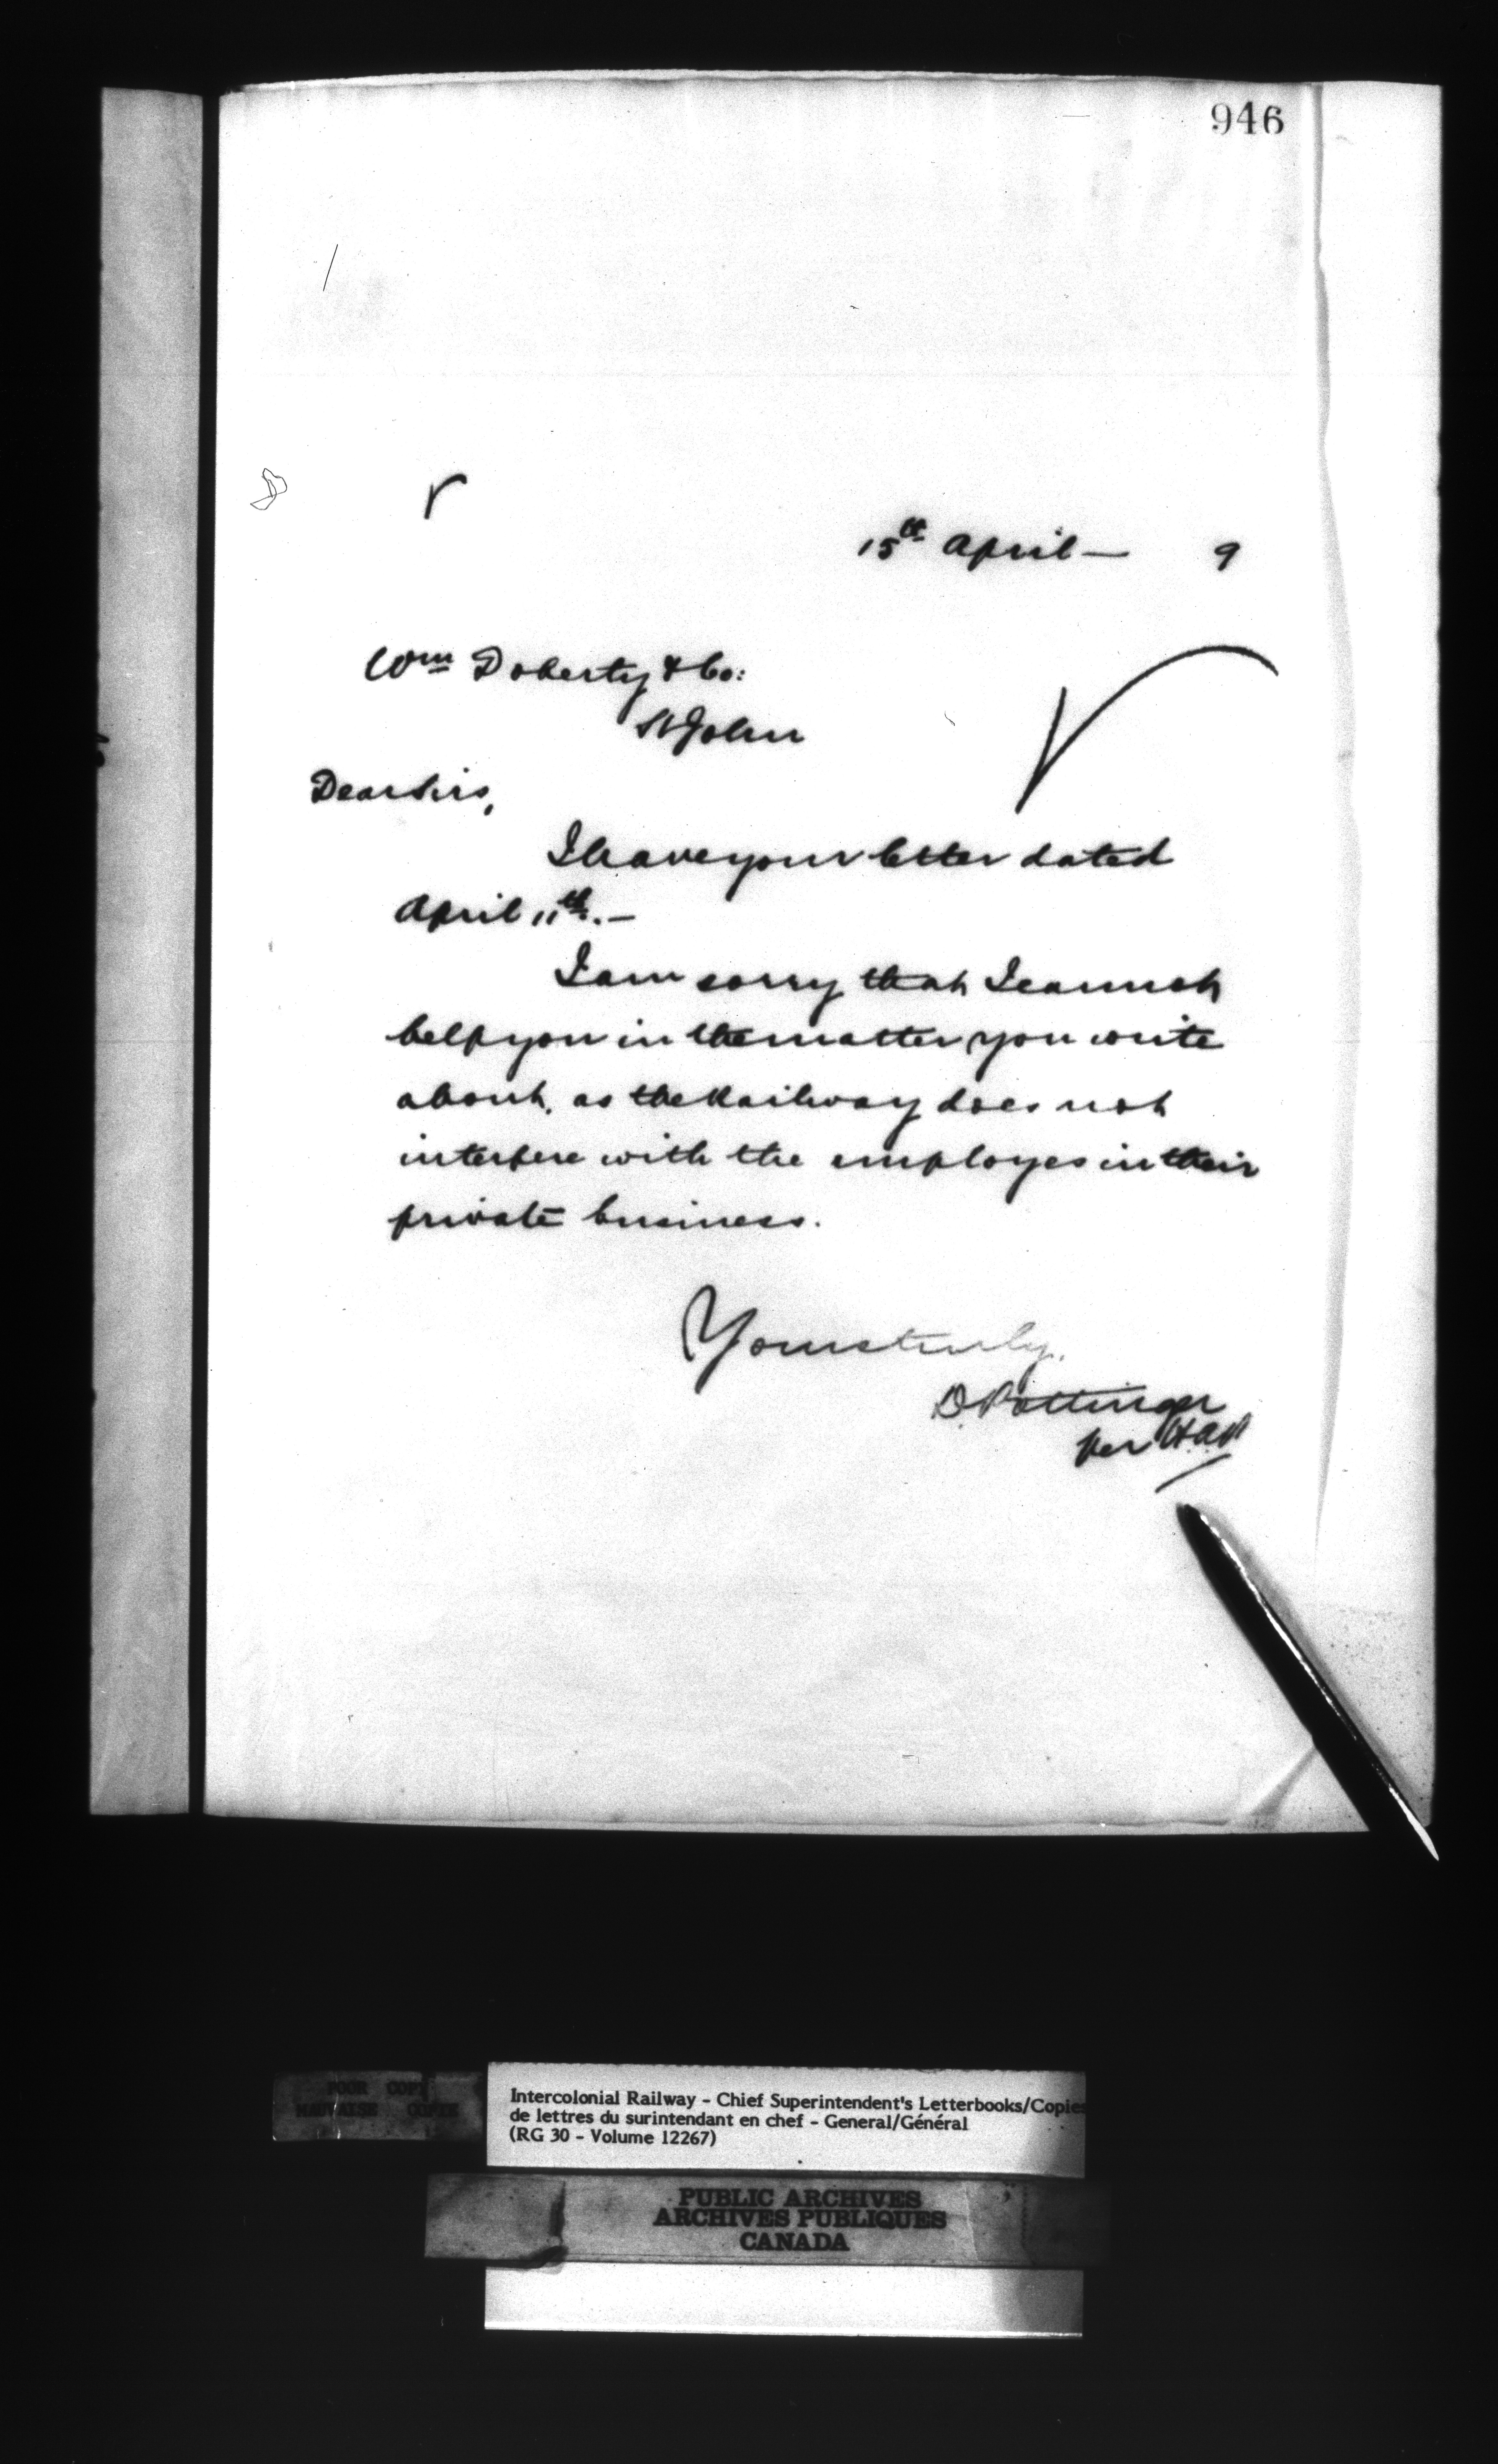 946
15th April — 9
Wm Doherty & Co:
St John
Dear Sirs,
I have your letter dated
April 11th. —
I am sorry that I cannot
help you in the matter you write
about, as the Railway does not
interfere with the employes in their
private business.
Yours truly,
D. Pottinger
per
POOR COPY
MAUVAISE COPIE
Intercolonial Railway - Chief Superintendent's Letterbooks/Copies
de lettres du surintendant en chef - General/Général
(RG 30 - Volume 12267)
PUBLIC ARCHIVES
ARCHIVES PUBLIQUES
CANADA